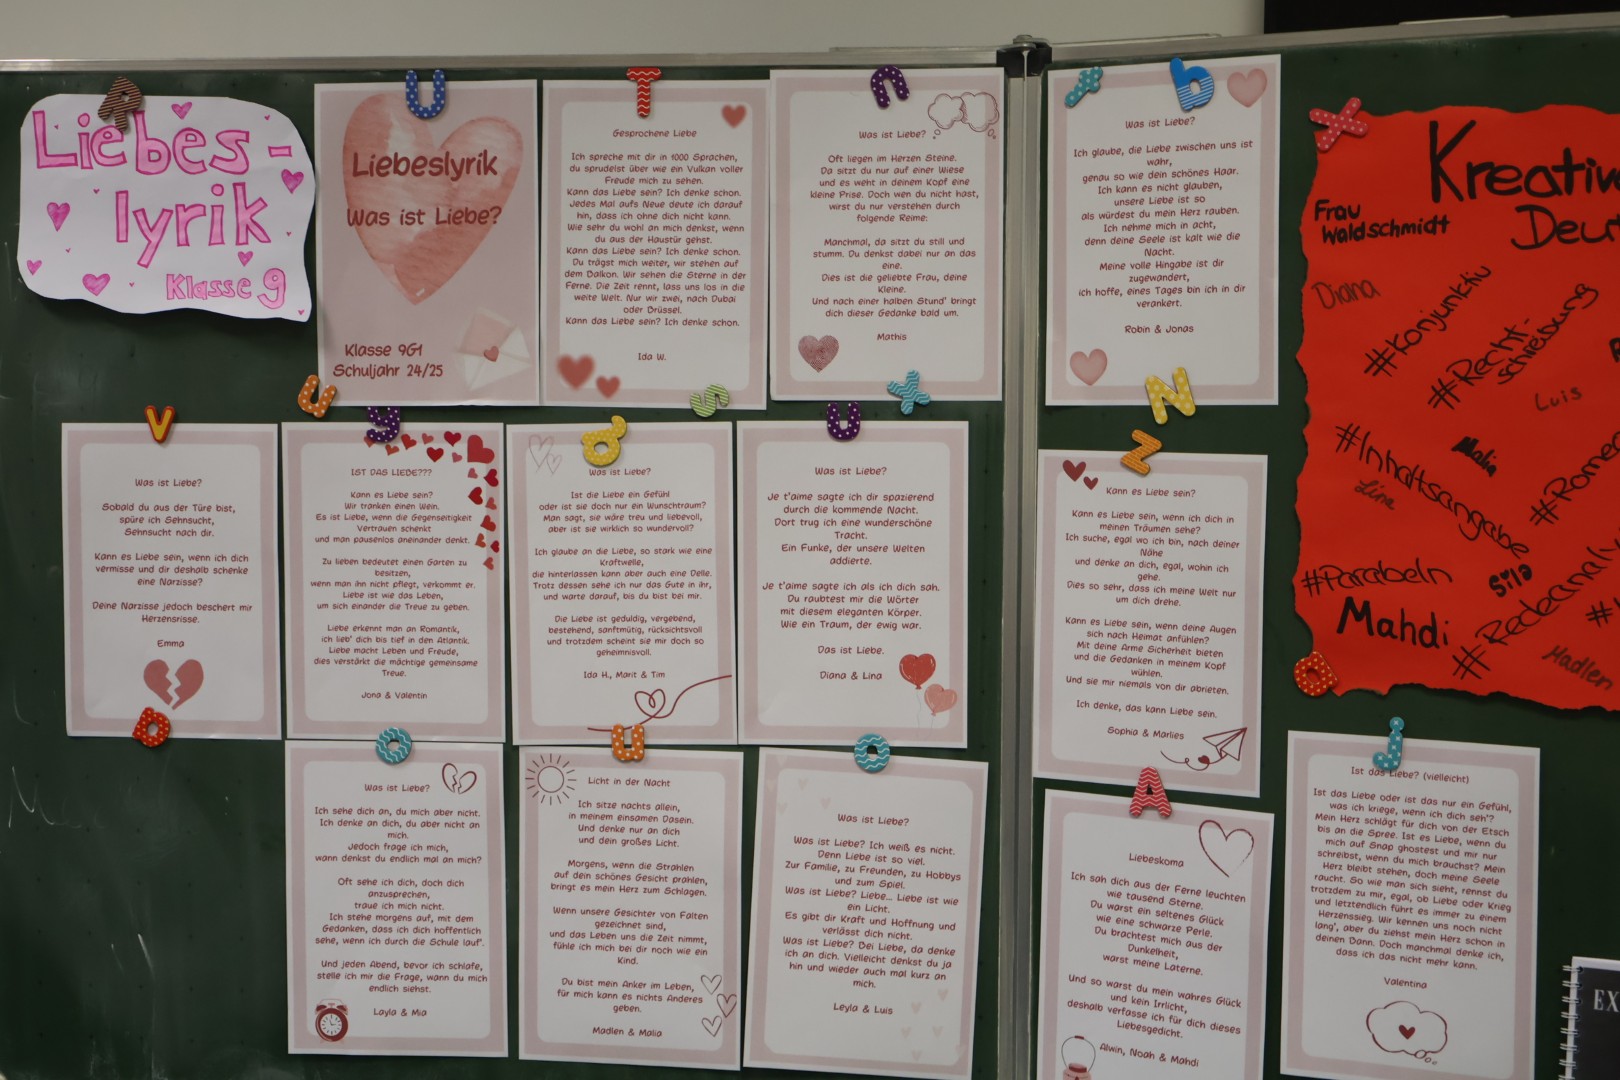 Liebes-
lyrik
Klasse 9
Liebeslyrik
Was ist Liebe?
Klasse 9G1
Schuljahr 24/25
Gesprochene Liebe
Ich spreche mit dir in 1000 Sprachen,
du sprudelst über wie ein Vulkan voller
Freude mich zu sehen.
Kann das Liebe sein? Ich denke schon.
Jedes Mal aufs Neue deute ich darauf
hin, dass ich ohne dich nicht kann.
Wie sehr du wohl an mich denkst, wenn
du aus der Haustür gehst.
Kann das Liebe sein? Ich denke schon.
Du trägst mich weiter, wir stehen auf
dem Balkon. Wir sehen die Sterne in der
Ferne. Die Zeit rennt, lass uns los in die
weite Welt. Nur wir zwei, nach Dubai
oder Brüssel.
Kann das Liebe sein? Ich denke schon.
Ida W.
Was ist Liebe?
Oft liegen im Herzen Steine.
Da sitzt du nur auf einer Wiese
und es weht in deinem Kopf eine
kleine Prise. Doch wen du nicht hast,
wirst du nur verstehen durch
folgende Reime:
Manchmal, da sitzt du still und
stumm. Du denkst dabei nur an das
eine.
Dies ist die geliebte Frau, deine
Kleine.
Und nach einer halben Stund' bringt
dich dieser Gedanke bald um.
Mathis
Was ist Liebe?
Ich glaube, die Liebe zwischen uns ist
wahr,
genau so wie dein schönes Haar.
Ich kann es nicht glauben,
unsere Liebe ist so
als würdest du mein Herz rauben.
Ich nehme mich in acht,
denn deine Seele ist kalt wie die
Nacht.
Meine volle Hingabe ist dir
zugewandert,
ich hoffe, eines Tages bin ich in dir
verankert.
Robin & Jonas
Kreativ
Deut
Frau
Waldschmidt
Diana
#Konjunktiv
#Recht-
schreibung
Luis
Malia
Lina
#Inhaltsangabe
#Romeo
#Parabeln
Sila
Mahdi
#Redeanaly
Madlen
Was ist Liebe?
Sobald du aus der Türe bist,
spüre ich Sehnsucht,
Sehnsucht nach dir.
Kann es Liebe sein, wenn ich dich
vermisse und dir deshalb schenke
eine Narzisse?
Deine Narzisse jedoch beschert mir
Herzensrisse.
Emma
IST DAS LIEBE???
Kann es Liebe sein?
Wir tranken einen Wein.
Es ist Liebe, wenn die Gegenseitigkeit
Vertrauen schenkt
und man pausenlos aneinander denkt.
Zu lieben bedeutet einen Garten zu
besitzen,
wenn man ihn nicht pflegt, verkommt er.
Liebe ist wie das Leben,
um sich einander die Treue zu geben.
Liebe erkennt man an Romantik,
ich lieb' dich bis tief in den Atlantik.
Liebe macht Leben und Freude,
dies verstärkt die mächtige gemeinsame
Treue.
Jona & Valentin
Was ist Liebe?
Ist die Liebe ein Gefühl
oder ist sie doch nur ein Wunschtraum?
Man sagt, sie wäre treu und liebevoll,
aber ist sie wirklich so wundervoll?
Ich glaube an die Liebe, so stark wie eine
Kraftwelle,
die hinterlassen kann aber auch eine Delle.
Trotz dessen sehe ich nur das Gute in ihr,
und warte darauf, bis du bist bei mir.
Die Liebe ist geduldig, vergebend,
bestehend, sanftmütig, rücksichtsvoll
und trotzdem scheint sie mir doch so
geheimnisvoll.
Ida H., Marit & Tim
Was ist Liebe?
Je t'aime sagte ich dir spazierend
durch die kommende Nacht.
Dort trug ich eine wunderschöne
Tracht.
Ein Funke, der unsere Welten
addierte.
Je t'aime sagte ich als ich dich sah.
Du raubtest mir die Wörter
mit diesem eleganten Körper.
Wie ein Traum, der ewig war.
Das ist Liebe.
Diana & Lina
Kann es Liebe sein?
Kann es Liebe sein, wenn ich dich in
meinen Träumen sehe?
Ich suche, egal wo ich bin, nach deiner
Nähe
und denke an dich, egal, wohin ich
gehe.
Dies so sehr, dass ich meine Welt nur
um dich drehe.
Kann es Liebe sein, wenn deine Augen
sich nach Heimat anfühlen?
Mit deine Arme Sicherheit bieten
und die Gedanken in meinem Kopf
wühlen.
Und sie mir niemals von dir abrieten.
Ich denke, das kann Liebe sein.
Sophia & Marlies
Was ist Liebe?
Ich sehe dich an, du mich aber nicht.
Ich denke an dich, du aber nicht an
mich.
Jedoch frage ich mich,
wann denkst du endlich mal an mich?
Oft sehe ich dich, doch dich
anzusprechen,
traue ich mich nicht.
Ich stehe morgens auf, mit dem
Gedanken, dass ich dich hoffentlich
sehe, wenn ich durch die Schule lauf'.
Und jeden Abend, bevor ich schlafe,
stelle ich mir die Frage, wann du mich
endlich siehst.
Layla & Mia
Licht in der Nacht
Ich sitze nachts allein,
in meinem einsamen Dasein.
Und denke nur an dich
und dein großes Licht.
Morgens, wenn die Strahlen
auf dein schönes Gesicht prahlen,
bringt es mein Herz zum Schlagen.
Wenn unsere Gesichter von Falten
gezeichnet sind,
und das Leben uns die Zeit nimmt,
fühle ich mich bei dir noch wie ein
Kind.
Du bist mein Anker im Leben,
für mich kann es nichts Anderes
geben.
Madlen & Malia
Was ist Liebe?
Was ist Liebe? Ich weiß es nicht.
Denn Liebe ist so viel.
Zur Familie, zu Freunden, zu Hobbys
und zum Spiel.
Was ist Liebe? Liebe... Liebe ist wie
ein Licht.
Es gibt dir Kraft und Hoffnung und
verlässt dich nicht.
Was ist Liebe? Bei Liebe, da denke
ich an dich. Vielleicht denkst du ja
hin und wieder auch mal kurz an
mich.
Leyla & Luis
Liebeskoma
Ich sah dich aus der Ferne leuchten
wie tausend Sterne.
Du warst ein seltenes Glück
wie eine schwarze Perle.
Du brachtest mich aus der
Dunkelheit,
warst meine Laterne.
Und so warst du mein wahres Glück
und kein Irrlicht,
deshalb verfasse ich für dich dieses
Liebesgedicht.
Alwin, Noah & Mahdi
Ist das Liebe? (vielleicht)
Ist das Liebe oder ist das nur ein Gefühl,
was ich kriege, wenn ich dich seh'?
Mein Herz schlägt für dich von der Etsch
bis an die Spree. Ist es Liebe, wenn du
mich auf Snap ghostest und mir nur
schreibst, wenn du mich brauchst? Mein
Herz bleibt stehen, doch meine Seele
raucht. So wie man sich sieht, rennst du
trotzdem zu mir, egal, ob Liebe oder Krieg
und letztendlich führt es immer zu einem
Herzenssieg. Wir kennen uns noch nicht
lang', aber du ziehst mein Herz schon in
deinen Bann. Doch manchmal denke ich,
dass ich das nicht mehr kann.
Valentina
EX